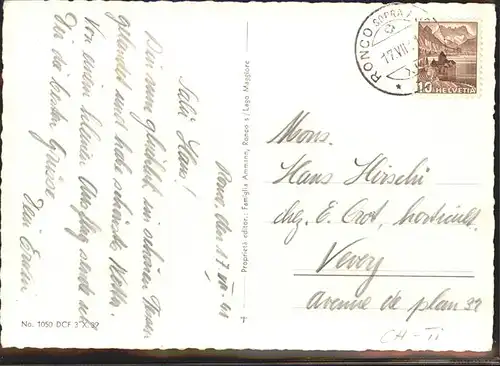 Ronco, den 17. VII. 41
Salü Hans!
Bin nun glücklich im schönen Tessin
gelandet und habe schönstes Wetter.
Von einem kleinen Ausflug sende ich
Dir die besten Grüsse.
Dein Erwin
No. 1050 DCF 3 X. 39
Proprietà editor.: Famiglia Ammann, Ronco s/Lago Maggiore
RONCO SOPRA
17.VII
10 HELVETIA
Mons.
Hans Hirschi
chez E. Crot, horticult.
Vevey
avenue de plan 32
CH-TI